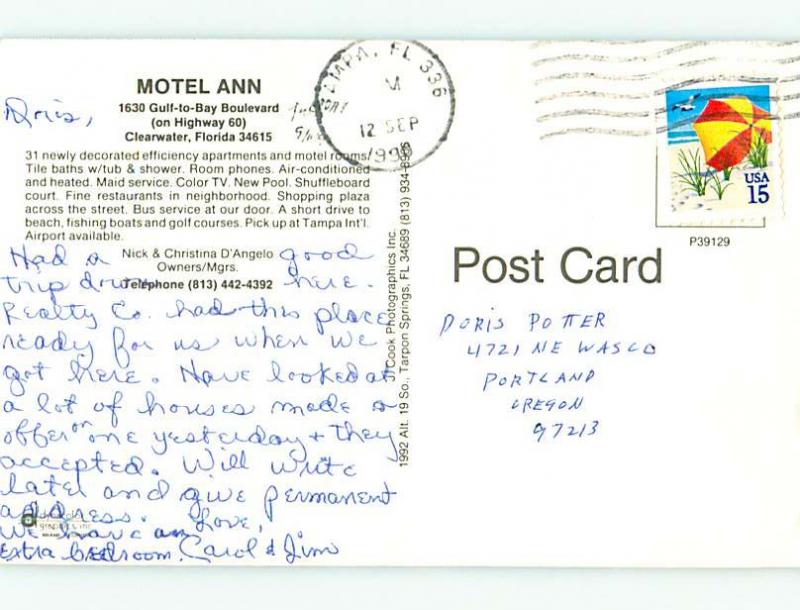 MOTEL ANN
1630 Gulf-to-Bay Boulevard
(on Highway 60)
Clearwater, Florida 34615
31 newly decorated efficiency apartments and motel rooms.
Tile baths w/tub & shower. Room phones. Air-conditioned
and heated. Maid service. Color TV. New Pool. Shuffleboard
court. Fine restaurants in neighborhood. Shopping plaza
across the street. Bus service at our door. A short drive to
beach, fishing boats and golf courses. Pick up at Tampa Int'l.
Airport available.
Nick & Christina D'Angelo
Owners/Mgrs.
Telephone (813) 442-4392
Doris,
Had a good
trip down here.
Realty Co. had this place
ready for us when we
got here. Have looked at
a lot of houses made a
offer on one yesterday + they
accepted. Will write
later and give permanent
address. Love,
We have an
Extra bedroom. Carol & Jim
Cook Photographics Inc.
1992 Alt. 19 So., Tarpon Springs, FL 34689 (813) 934-
TAMPA, FL 336
12 SEP
USA
15
P39129
Post Card
DORIS POTTER
4721 NE WASCO
PORTLAND
OREGON
97213